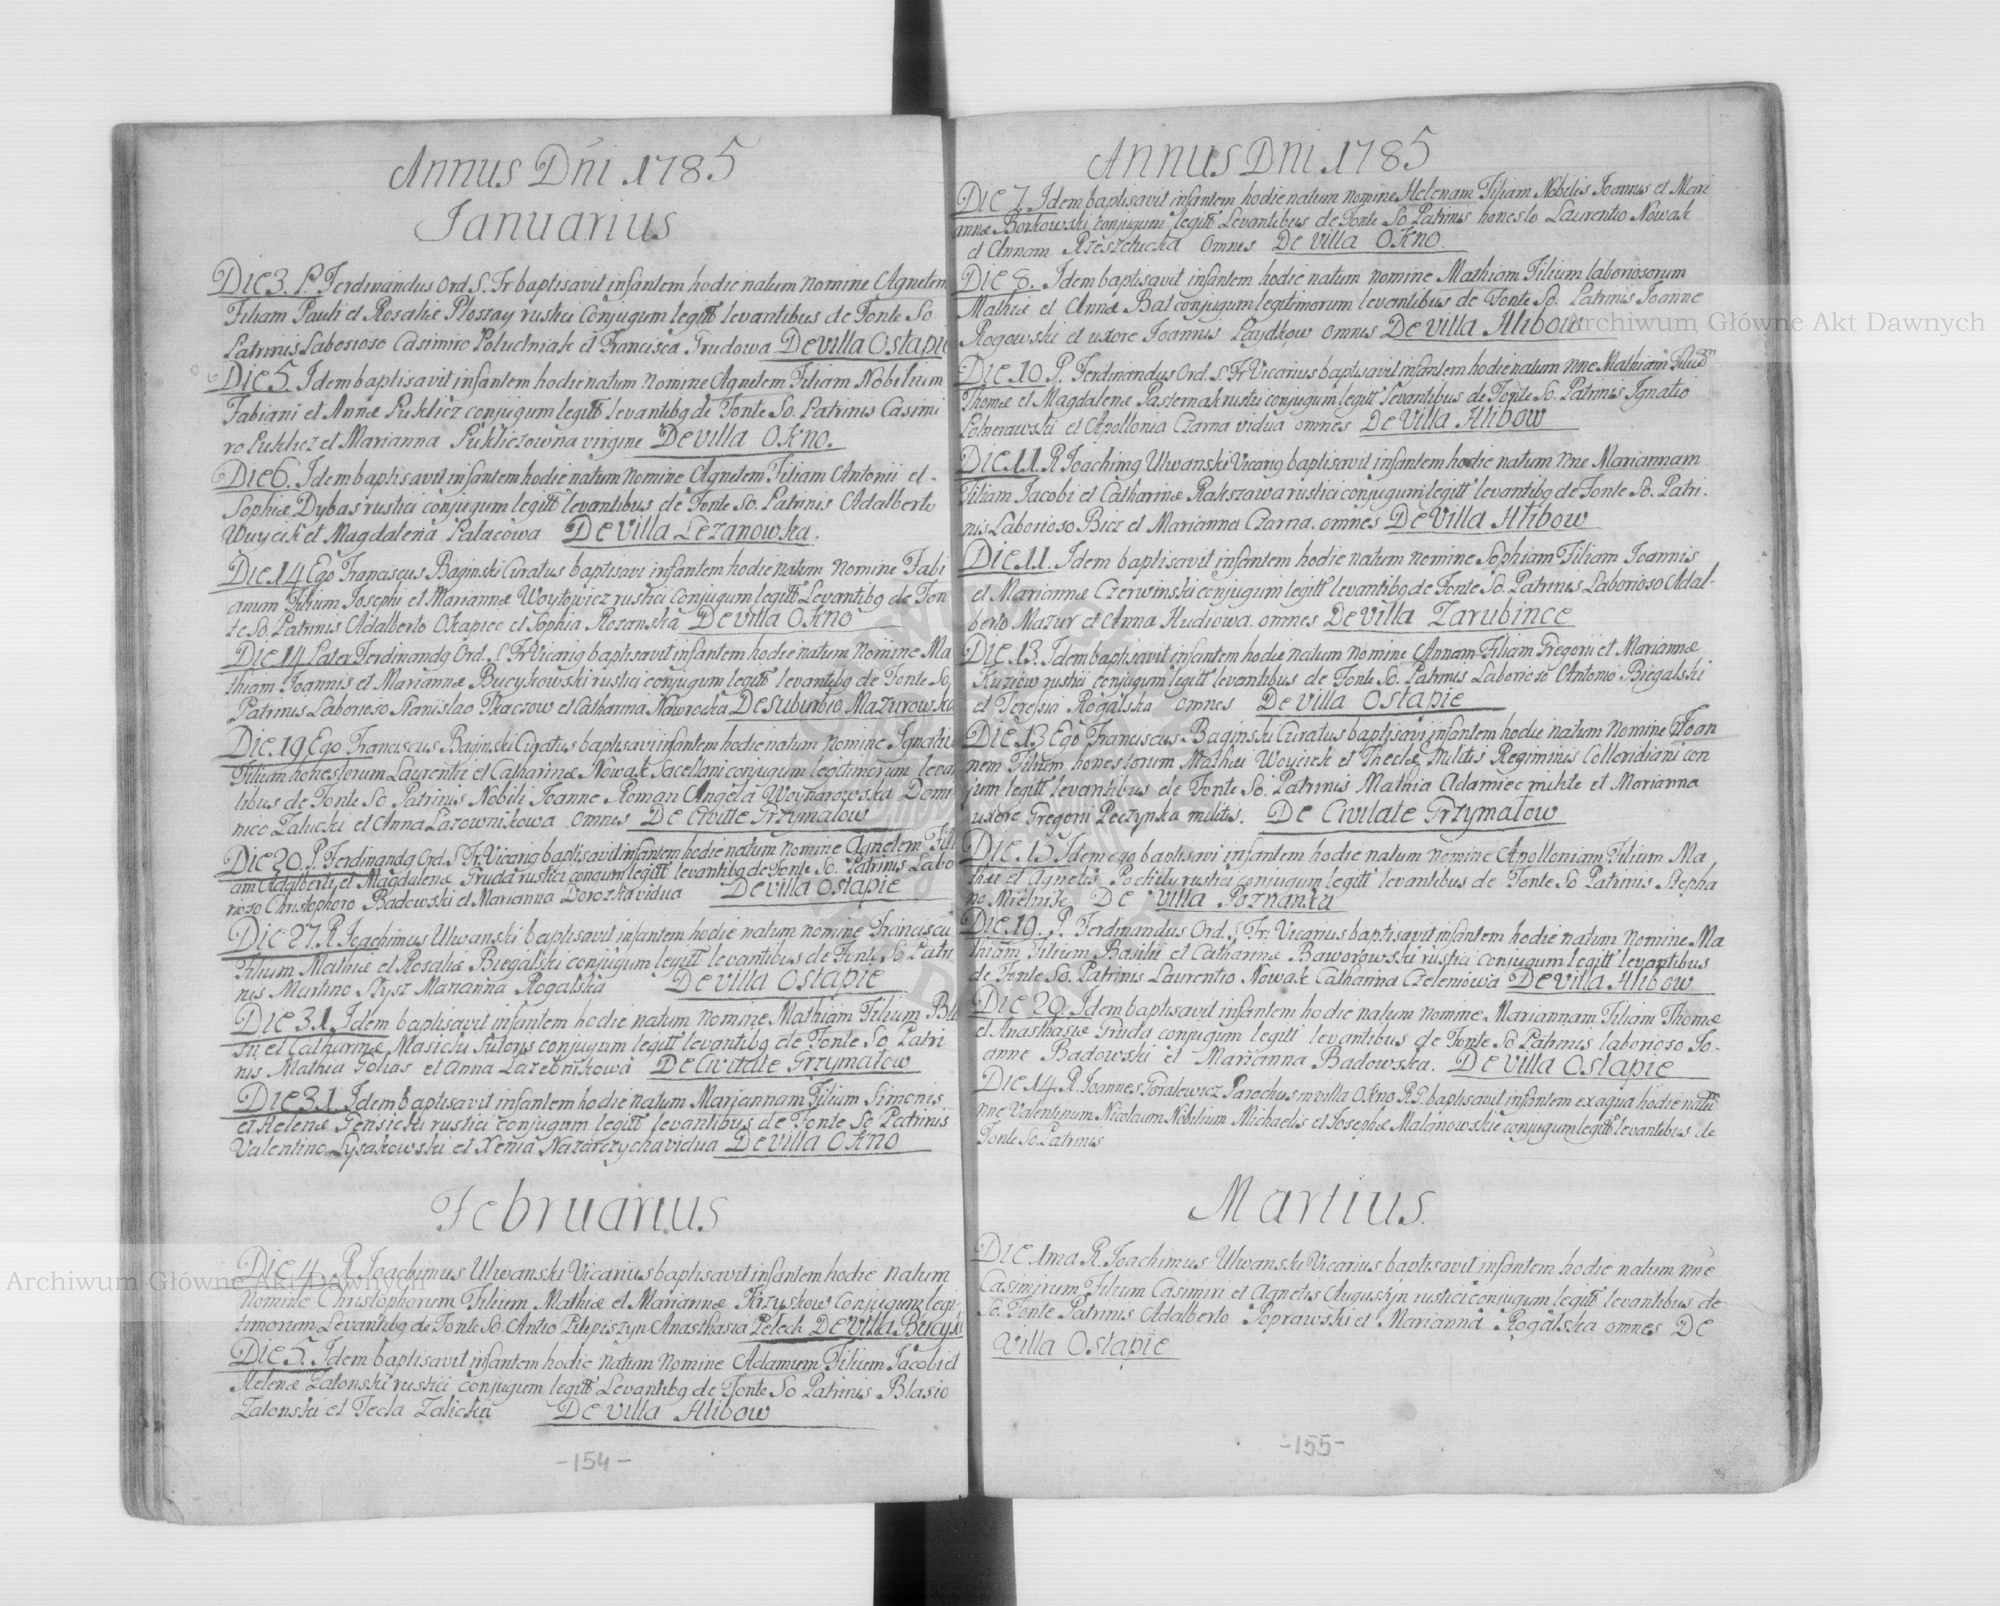 Annus Dni 1785
Januarius
Die 3. P. Ferdinandus Ord. S. Fr baptisavit infantem hodie natum nomine Agnetem
Filiam Pauli et Rosaliæ Ploszay rustici Conjugum legitt levantibus de Fonte So
Patrinis Laborioso Casimiro Poluchniak et Francisca Grudowa De villa Ostapie
Die 5. Idem baptisavit infantem hodie natum nomine Agnetem Filiam Nobilium
Fabiani et Annæ Puklicz conjugum legitt levantibq de Fonte So. Patrinis Casimi
ro Puklicz et Marianna Pukliczowna virgine De villa Okno.
Die 6. Idem baptisavit infantem hodie natum nomine Agnetem Filiam Antonii et
Sophiæ Dybas rustici conjugum legitt levantibus de Fonte So. Patrinis Adalberto
Wuycik et Magdalena Palacowa De villa Lezanowka.
Die 14 Ego Franciscus Baginski Curatus baptisavi infantem hodie natum nomine Fabi
anum Filium Josephi et Mariannæ Woytowicz rustici Conjugum legitt Levantibq de Fon
te So. Patrinis Adalberto Okapiec et Sophia Rozanska De villa Okno
Die 14 Pater Ferdinandq Ord. S. Fr Vicariq baptisavit infantem hodie natum nomine Ma
thiam Joannis et Mariannæ Bucykowski rustici conjugum legitt levantibq de Fonte So
Patrinis Laborioso Stanislao Tkacsow et Catharina Nawrocka De Suburbio Mazurowska
Die 19 Ego Franciscus Baginski Curatus baptisavi infantem hodie natum nomine Ignatiu
Filium honestorum Laurentii et Catharinæ Nowak Sacellani conjugum legitimorum levan
tibus de Fonte So Patrinis Nobili Joanne Roman Angela Woynarowska Domi
nico Zalicki et Anna Lazownikowa omnes De Civitte Grzymalow
Die 20. P. Ferdinandq Ord. S Fr. Vicariq baptisavit infantem hodie natum nomine Agnetem Fili
am Adalberti et Magdalenæ Gruda rustici conqum legitt levantibq de Fonte So. Patrinis Labo
rioso Christophoro Badowski et Marianna Dorozka vidua De villa Ostapie
Die 27. R Joachimus Ulwanski baptisavit infantem hodie natum nomine Franciscu
Filium Mathiæ et Rosaliæ Biegalski conjugum legitt levantibus de Fonte So Patri
nis Martino Szysz Marianna Rogalska De villa Ostapie
Die 31. Idem baptisavit infantem hodie natum nomine Mathiam Filium Bla
sii et Catharinæ Masicki Sutoris conjugum legitt levantibq de Fonte So Patri
nis Mathia Golias et Anna Lazebnikowa De Civitate Grzymalow
Die 31. Idem baptisavit infantem hodie natum Mariannam Filium Simonis
et Helenæ Gensicki rustici conjugum legitt levantibus de Fonte So Patrinis
Valentino Lysakowski et Xenia Nazarczycha vidua De villa Okno
Februarius
Die 4. R Joachimus Ulwanski Vicarius baptisavit infantem hodie natum
nomine Christophorum Filium Mathiæ et Mariannæ Krzyskow Conjugum legi
timorum Levantibq de Fonte So. Antio Pilipiszyn Anasthasia Pelech De villa Bucyki
Die 5. Idem baptisavit infantem hodie natum nomine Adamum Filium Jacobi et
Helenæ Zatonski rustici conjugum legitt Levantibq de Fonte So Patrinis Blasio
Zatonski et Tecla Zalicka De villa Hlibow
-154-
Annus Dni 1785
Die 7. Idem baptisavit infantem hodie natum nomine Helenam Filiam Nobilis Joannis et Mari
annæ Borkowski conjugum legitt Levantibus de Fonte So Patrinis honesto Laurentio Nowak
et Annam Rzeszetucha omnes De villa Okno
Die 8. Idem baptisavit infantem hodie natum nomine Mathiam Filium laboriosorum
Mathiæ et Annæ Bal conjugum legitimorum levantibus de Fonte So. Patrinis Joanne
Rogowski et uxore Joannis Paydkow omnes De villa Hlibow
Die 10 P. Ferdinandus Ord. S. Fr Vicarius baptisavit infantem hodie natum nne Mathiam Filiu
Thomæ et Magdalenæ Pasternak rustici conjugum legitt levantibus de Fonte So. Patrinis Ignatio
Polnerawski et Apollonia Czarna vidua omnes De villa Hlibow
Die 11. R Joachimq Ulwanski Vicariq baptisavit infantem hodie natum nne Mariannam
Filiam Jacobi et Catharinæ Rakszawa rustici conjugum legitt levantibq de Fonte So. Patri
nis Laborioso Bicz et Marianna Czarna. omnes De villa Hlibow
Die 11. Idem baptisavit infantem hodie natum nomine Sophiam Filiam Joannis
et Mariannæ Czerwinski conjugum legitt levantibq de Fonte So. Patrinis Laborioso Adal-
berto Mazur et Anna Hudiowa. omnes De villa Zarubince
Die 13. Idem baptisavit infantem hodie natum nomine Annam Filiam Gregorii et Mariannæ
Kuziow rustici conjugum legitt levantibus de Fonte So. Patrinis Laborioso Antonio Biegalski
et Teresia Rogalska omnes De villa Ostapie
Die 13 Ego Franciscus Baginski Curatus baptisavi infantem hodie natum nomine Joan
nem Filium honestorum Mathiæ Woycick et Theclæ Militis Regiminis Colloridiani con
jum legitt levantibus de Fonte So. Patrinis Mathia Adamiec milite et Marianna
uxore Gregorii Peczynska militis. De Civitate Grzymalow
Die 15 Idem ego baptisavi infantem hodie natum nomine Apolloniam Filium Ma
thæi et Agnetis Pochily rustici conjugum legitt levantibus de Fonte So Patrinis Stepha
no Mielnik De villa Poznanka
Die 19. P. Ferdinandus Ord. S Fr. Vicarius baptisavit infantem hodie natum nomine Ma
thiam Filium Basilii et Catharinæ Baworowski rustici conjugum legitt levantibus
de Fonte So. Patrinis Laurentio Nowak Catharina Czeleniowa De villa Hlibow
Die 20. Idem baptisavit infantem hodie natum nomine Mariannam Filiam Thomæ
et Anasthasiæ Gruda conjugum legitt levantibus de Fonte So Patrinis laborioso Jo-
anne Badowski et Marianna Badowska. De villa Ostapie
Die 14. R. Joannes Goralewicz Parochus in villa Okno R.G. baptisavit infantem ex aqua hodie natu
nne Valentinum Nicolaum Nobilium Michaelis et Josephæ Malinowskie conjugum legitt levantibus de
Fonte So. Patrinis
Martius
Die 1ma R. Joachimus Ulwanski Vicarius baptisavit infantem hodie natum nne
Casimirum Filium Casimiri et Agnetis Augustyn rustici conjugum legitt levantibus de
So. Fonte Patrinis Adalberto Poprawski et Marianna Rogalska omnes De
villa Ostapie
-155-
Archiwum Główne Akt Dawnych
Archiwum Główne Akt Dawnych